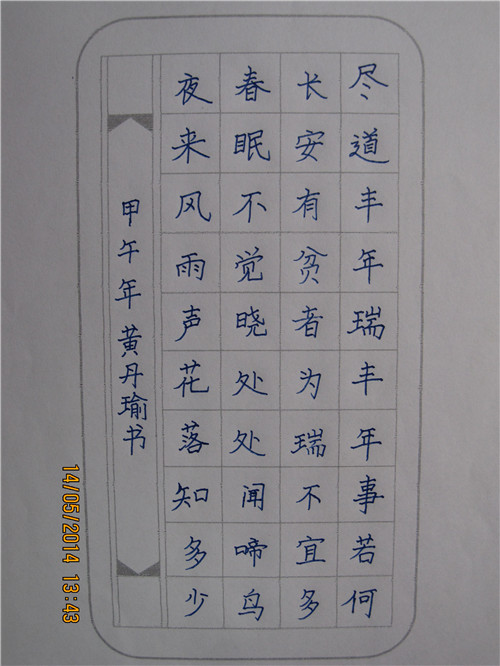 尽道丰年瑞丰年事若何
长安有贫者为瑞不宜多
春眠不觉晓处处闻啼鸟
夜来风雨声花落知多少
甲午年黄丹瑜书
14/05/2014 13:43